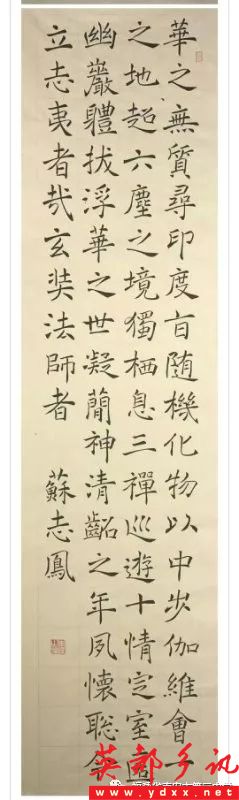 華之無質尋印度百随機化物以中步伽維會
之地超六塵之境獨栖息三禪巡遊十情定室
幽巖體拔浮華之世凝簡神清齠之年夙懷聡令
立志夷者哉玄奘法師者 蘇志鳳
英都乡讯
www.ydxx.net